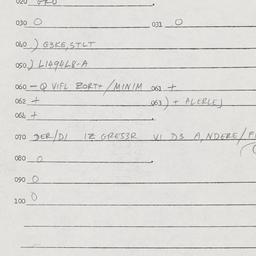 020
030 0 031 0
040 ) G3KE,STLT
050 ) L1494L8-A
060 - Q VIFL ZORT+/MINIM 061 +
062 + 063 ) + ALERLEJ
064 +
070 DER/DI IZ GRES3R VI D3 A,NDERE/
080 0
090 0
100 0